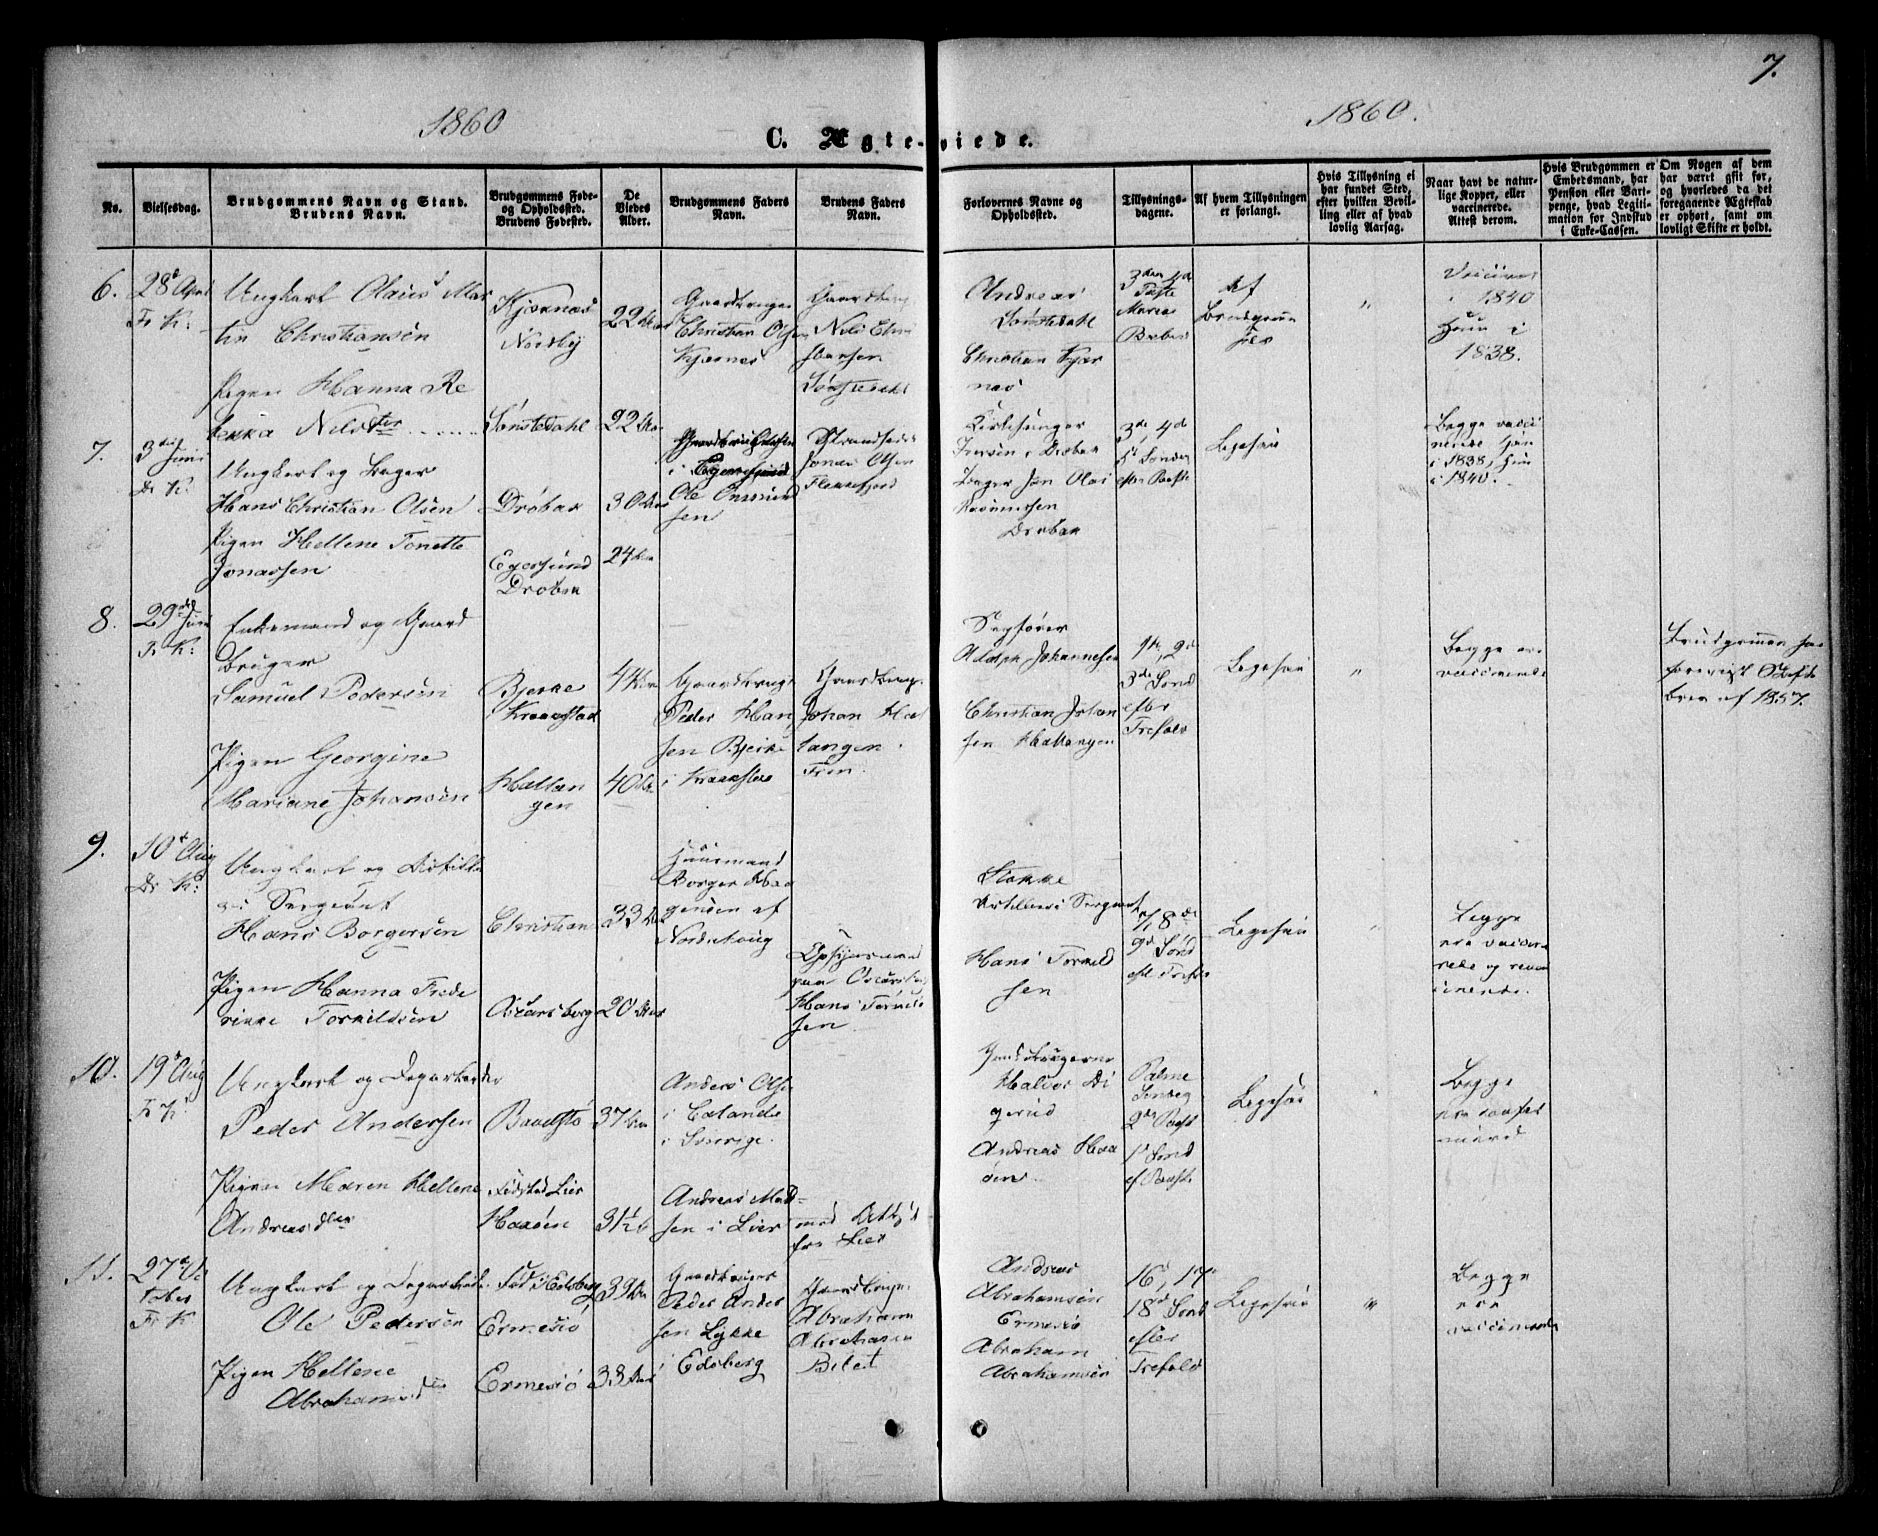 7.
1860
1860.
C. Ægte-viede.
No.
Vielsesdag.
Brudgommens Navn og Stand.
Brudens Navn.
Brudgommens Føde-
og Opholdsted.
Brudens Fødested.
De
Viedes
Alder.
Brudgommens Faders
Navn.
Brudens Faders
Navn.
Forlovernes Navne og
Opholdsted.
Tillysnings-
dagene.
Af hvem Tillysningen
er forlangt.
Hvis Tillysning ei
har fundet Sted,
efter hvilken Bevil-
ling eller af hvad
lovlig Aarsag.
Naar havt de natur-
lige Kopper, eller
vaccinerede.
Attest derom.
Hvis Brudgommen er
Embedsmand, har
Pension eller Vart-
penge, hvad Legiti-
mation for Indskud
i Enke-Cassen.
Om Nogen af dem
har været gift før,
og hvorledes da det
foregaaende Ægteskab
er ophørt, samt om
lovligt Skifte er holdt.
6.
28d April
Fr K:
Ungkarl Olaus Mar
tin Christiansen
Pigen Hanna Re
bekka Nilsdter
Kjærnæs
Nordby
Sønstedahl
22 Aar
22 Aar
Gaardbruger
Christian Olsen
Kjærnes
Gaardbrug.
Nils Chri
stensen
Sønstedahl
Andreas
Sønstedahl
Christian Kjær
næs
3den 4de
Faste
Marias
Bebud
Af
Brudgom
men
1840
Hun i
1838.
7.
3die Juni
Dr K:
Ungkarl og Bager
Hans Christian Olsen
Pigen Hellene Tonette
Jonassen
Drøbak
Egersund
Drøbak
30 Aar
24 Aar
Ole
sen
Strandsidder
Jonas Olsen
Flekkefjord
Kirkesanger
Iversen i Drøbak
Bager Jen Olai
Rasmussen
Drøbak
3de 4de
5te Søndag
efter Paaske
Begesaa
Begge vacci
nerede han
i 1838, hun
i 1840.
8.
29de Juni
Fr K:
Enkemand og Gaard
bruger
Samuel Pedersen
Pigen Georgine
Mariane Johansen
Bjerke
Kraakstad
Hallan
gen
40 Aar
Gaardbrug.
Peder Han
sen Bjerke
i Kraakstad
Gaardbrug.
Johan Hal
langen
From.
Sagfører
Adolph Johannesen
Christian Johan
sen Hallangen
1ste, 2de
3die Sønd
efter
Trefold
Begesaa
"
Begge ere
vaccinerede
Brudgommen har
foreviist Skifte
brev af 1857.
9.
10d Aug
Dr K:
Ungkarl og Artille
ri Sergeant
Hans Borgersen
Pigen Hanna Frede
rikke Torkildsen
Christiania
Oscarsborg
33 Aar
20 Aar
Huusmand
Borger Haa
gensen af
Nordstrug
Opsynsmand
paa Oscarsborg
Hans Torkild
sen
Stokke
Artilleri Sergeant
Hans Torkild
sen
7, 8de
9de Sønd
eft Trefold
Begesaa
Begge
ere vaccine
rede og revac
cinerede.
10.
19d Aug
Fr K:
Ungkarl og Dagarbeider
Peder Andersen
Pigen Maren Hellene
Andreasdter
Baadstø
Fødsted Lier
Haaøen
37 Aar
31½
Anders Olsen
i Eslanda
i Sverige.
Andreas Mad-
sen i Lier
med Attest
fra Lier
Gaardbrugerne
Halvor Di
gerud
Andreas Haa
øen.
Palme
Søndag
2den Paask
1 Sønd
ef Paaske
Begesaa
Begge
ere
11.
27de Oc
tober
Fr K
Ungkarl og Dagarbeider
Ole Pedersen
Pigen Hellene
Abrahamsdter
Fød i Edsberg
Ermesiø
Ermesiø
39 Aar
33 Aar
Gaardbruger
Peder Ander
sen Lykke
i Edsberg
Gaardbruger
Abraham
Abrahamsen
Bilet
Andreas
Abrahamsen
Ermesiø
Abraham
Abrahamsen
16d, 17de
18de Sønd
efter
Trefold
Begesaa
"
Begge
ere
vaccinerede